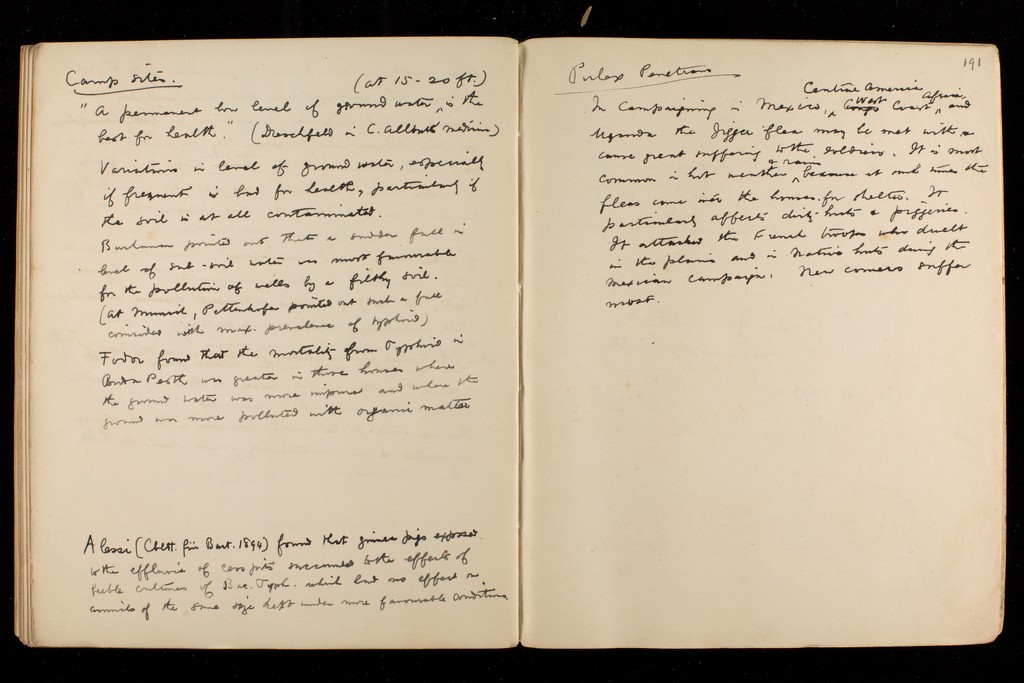 Camp sites.
(at 15-20 ft.)
"A permanent low level of ground water, is the
best for health." (Dreschfeld in C. Allbutt Medicine)
Variations in level of ground water, especially
if frequent is bad for health, particularly if
the soil is at all contaminated.
Buchanan pointed out that a sudden fall in
level of sub-soil water was most favourable
for the pollution of wells by a filthy soil.
(At Munich, Pettenkofer pointed out such a fall
coincided with max. prevalence of typhoid)
Fodor found that the mortality from Typhoid in
Buda Pesth was greater in those houses where
the ground water was more impure and where the
ground was more polluted with organic matter
Alessi (Cbett. für Bact. 1894) found that guinea pigs exposed
to the effluvia of cess pits succumbed to the effects of
feeble cultures of Bac. Typh. which had no effect on
animals of the same size kept under more favourable conditions.
191
Pulex Penetrans
Central America
West Africa,
In Campaigning in Mexico, Congo Coast, and
Uganda the Jigger flea may be met with &
cause great suffering to the soldiers. It is most
& rain
common in hot weather, because at such times the
fleas come into the houses for shelter. It
particularly affects dirty huts & piggeries.
It attacked the French troops who dwelt
in the plains and in Native huts during the
Mexican Campaign. New comers suffer
most.